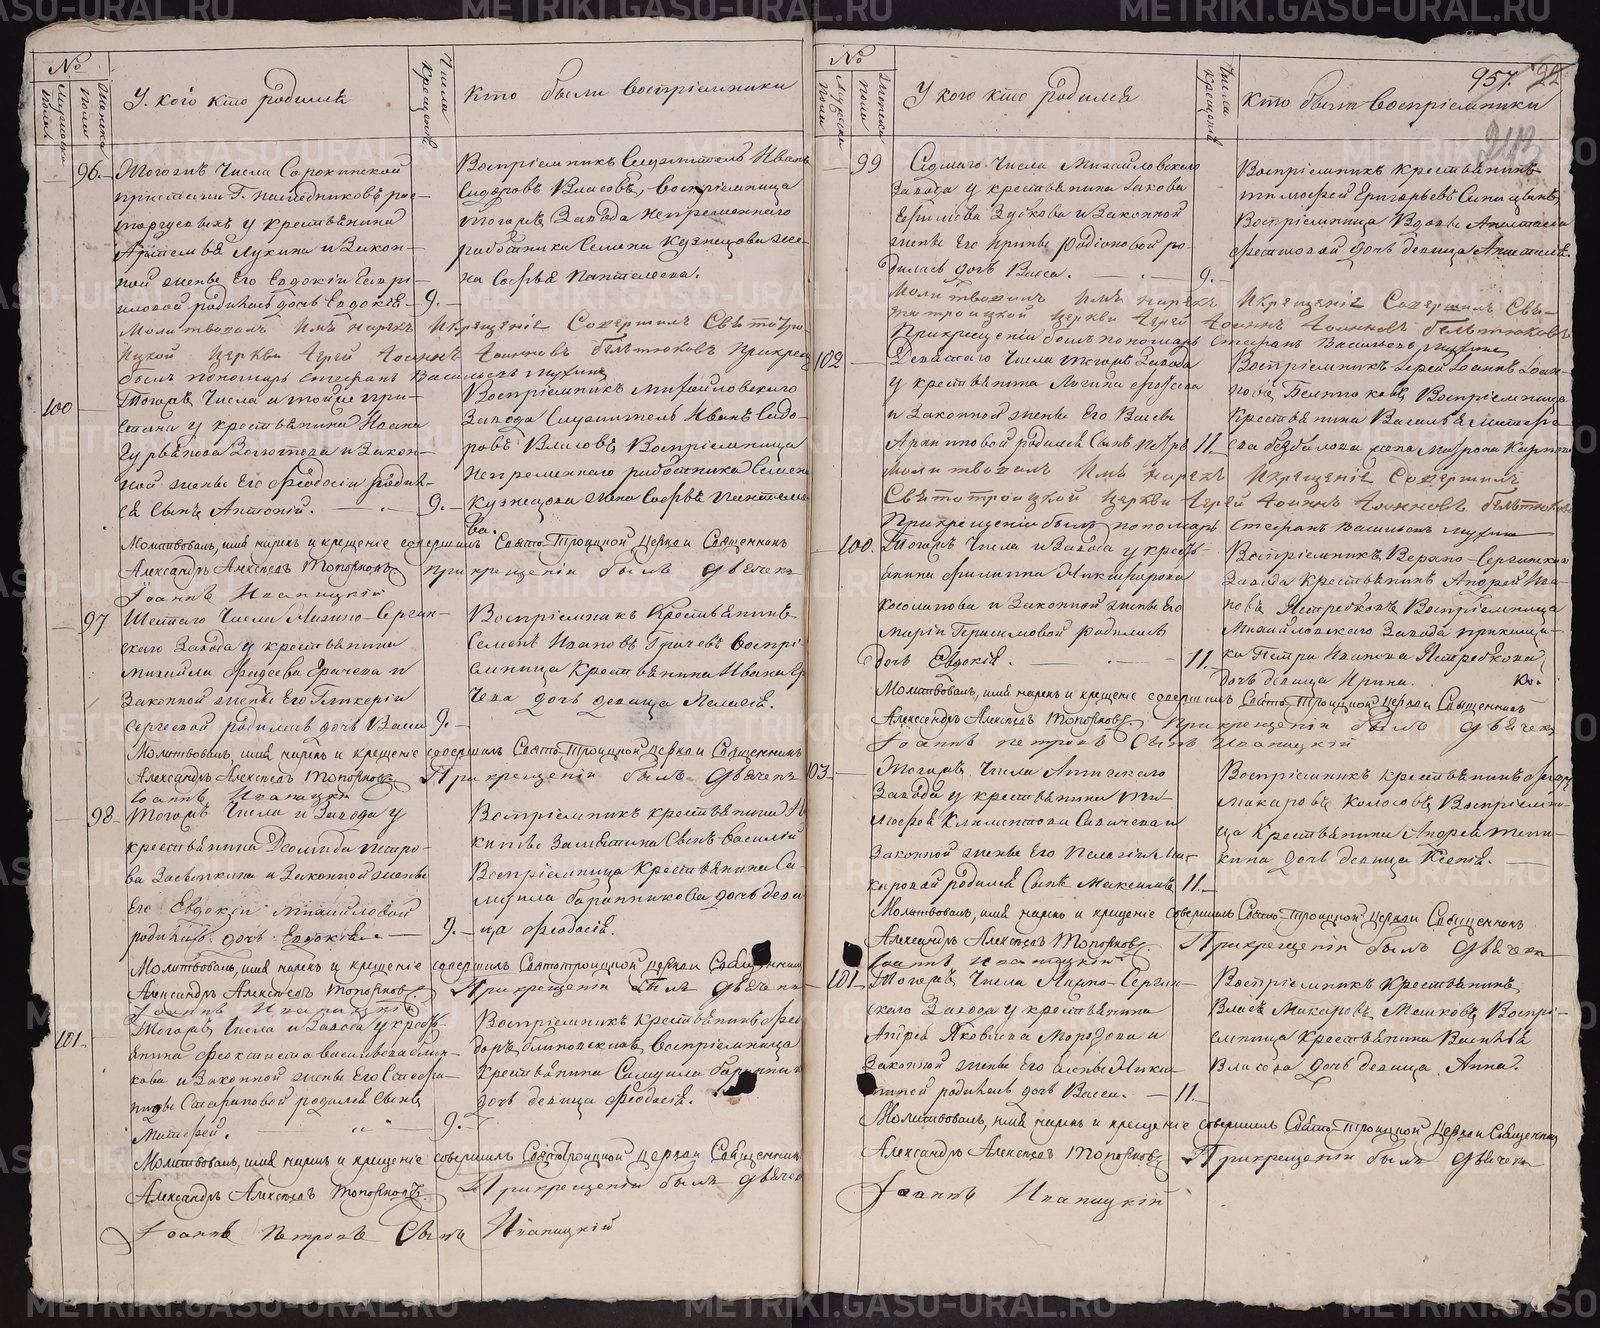 №
Мужеска пола
Женска пола
У кого кто родился
Числа крещенія
Кто были воспріемники
96.
Тогожъ Числа Сорокинской
пристани Г. наслѣдниковъ рас-
торгуевыхъ у крестьянина
Лукина и Закон-
ной жены Его Евдокіи Гаври-
иловой родилась дочь Евдокія
9.
Воспріемникъ Служитель Иванъ
Сидоровъ Власовъ, воспріемница
тогожъ Завода Непременнаго
работника Семена Кузнецова же-
на Софья Пантелеева.
Молитвовалъ Имъ нарекъ Икрещеніе Совершилъ Святотро-
ицкой церкви Іерей Іоаннъ Іоанновъ бѣльтюковъ Прикрещ
былъ пономарь Стефанъ Васильевъ
100
Тогожъ Числа и тойже при-
стани у крестьянина Ивана
Гурьянова и закон-
ной жены Его Феодосіи родил-
ся Сынъ Антоній.
9.
Воспріемникъ Михайловскаго
Завода Служитель Иванъ Сидо-
ровъ Власовъ Воспріемница
Непременнаго работника Семена
Кузнецова жена Софья Пантеле-
ва.
Молитвовалъ, имя нарекъ и крещеніе совершилъ Свято-Троицкой Церкви Священникъ
Александръ Алексѣевъ Топорковъ. При крещеніи былъ дьячекъ
Іоаннъ Ивáницкій
97
Шестаго Числа Нижно-Сергин-
скаго Завода у крестьянина
Михайла Фадеева Грачева и
Законной жены Его Гликеріи
Сергеевой родилась дочь Васса
9.
Воспріемникъ Крестьянинъ
Семенъ Ивановъ Грачевъ воспрі-
емница Крестьянина Ивана Гр
чева дочь девица Пелагія.
Молитвовалъ, имя нарекъ и крещеніе совершилъ Свято-Троицкой церкви Священникъ
Александръ Алексѣевъ Топорковъ При крещеніи былъ дьячекъ
Іоаннъ Иваницкій
98
Тогожъ Числа и Завода у
крестьянина Деомида Петро-
ва Засыпкина и Законной жены
Его Евдокіи Михайловой
родилась дочь Евдокія.
9.
Воспріемникъ крестьянина Ни
киты Сынъ Василій
Воспріемница Крестьянина Са-
муила баранникова дочь деви
ца Феодосія.
Молитвовалъ, имя нарекъ и крещеніе совершилъ Святотроицкой церкви Священникъ
Александръ Алексѣевъ Топорковъ. При крещеніи былъ дьячекъ
Іоаннъ Иваницкій
101
Тогожъ Числа и Завода у кресть-
янина Феоктиста Васильева
кова и Законной жены Его Стефа-
ниды родился Сынъ
9.
Воспріемникъ Крестьянинъ Фео
доръ воспріемница
крестьянина Самуила баранник
дочь девица Феодосія.
Молитвовалъ, имя нарекъ и крещеніе совершилъ Святотроицкой церкви Священникъ
Александръ Алексѣевъ Топорковъ. При крещеніи былъ дьячек
Іоаннъ Петровъ Сынъ Иваницкій
957.
№
Мужеска пола
Женска пола
У кого кто родился
Числа крещенія
Кто были воспріемники
99
Седмаго Числа Михайловскаго
Завода у крестьянина Іакова
Ефимова Зубкова и Законной
жены Его Ирины Родіоновой ро-
дилась дочь Васса.
9.
Воспріемникъ крестьянинъ
тимофей Григорьевъ Синицынъ,
Воспріемница Вдовы Анастасіи
дочь девица Анастасія.
Молитвовалъ Имъ нарекъ Икрещеніе Совершилъ Свя-
тотроицкой церкви Іерей Іоаннъ Іоанновъ бѣльтюковъ
Прикрещеніи былъ пономарь Стефанъ Васильевъ
102
Девятаго Числа тогожъ Завода
у крестьянина Логина
и Законной жены Его Вассы
Архиповой родился Сынъ Петръ
11.
Воспріемникъ Іерей Іоаннъ Іоан-
новъ Белтюковъ Воспріемница
Крестьянина Василья
ва жена Матрона Карпова
Молитвовалъ Имъ нарекъ Икрещеніе Совершилъ
Святотроицкой Церкви Іерей Іоаннъ Іоанновъ бѣльтюковъ
Прикрещеніи былъ пономарь Стефанъ Васильевъ
100.
Тогожъ Числа и Завода у кресть-
янина Филиппа Никифорова
Косолапова и Законной жены Его
Маріи Герасимовой родилась
дочь Евдокія.
11.
Воспріемникъ Верхно-Сергинскаго
Завода крестьянинъ Андрей Ива-
новъ Ястребковъ Воспріемница
Михайловскаго Завода прикащи-
ка Петра Иванова Ястребкова
дочь девица Ирина.
Молитвовалъ, имя нарекъ и крещеніе совершилъ Свято-Троицкой церкви Священникъ
Александръ Алексѣевъ Топорковъ. При крещеніи былъ дьячекъ
Іоаннъ Петровъ Сынъ Иваницкій
103.
Тогожъ Числа Атигскаго
Завода у крестьянина Ти-
мофея Климентова Савичева и
Законной жены Его Пелагіи Ма-
каровой родился Сынъ Максимъ
11.
Воспріемникъ крестьянинъ
Макаровъ Колосовъ Воспріемни-
ца Крестьянина Андрея
кина дочь девица Ксенія.
Молитвовалъ, имя нарекъ и крещеніе совершилъ Свято-Троицкой церкви Священникъ
Александръ Алексѣевъ Топорковъ. При крещеніи былъ дьячекъ
Іоаннъ Иваницкій
101
Тогожъ Числа Нижно-Сергин-
скаго Завода у крестьянина
Андрея Яковлева Морозова и
Законной жены Его
родилась дочь Васса.
11.
Воспріемникъ Крестьянинъ
Власъ Макаровъ Мешковъ Воспрі-
емница Крестьянина Василья
Власова дочь девица Анна.
Молитвовалъ, имя нарекъ и крещеніе совершилъ Свято-Троицкой Церкви Священникъ
Александръ Алексѣевъ Топорковъ При крещеніи былъ дьячекъ
Іоаннъ Иваницкій
METRIKI.GASU-URAL.RU